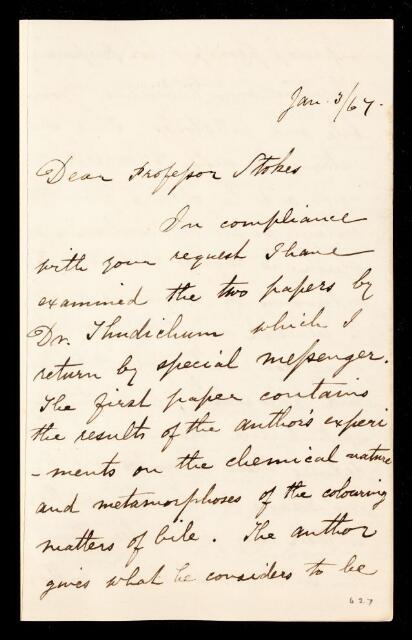 Jan. 3/67.
Dear Professor Stokes
In compliance
with your request I have
examined the two papers by
Dr. Thudichum which I
return by special messenger.
The first paper contains
the results of the author's experi
-ments on the chemical nature
and metamorphoses of the colouring
matters of bile. The author
gives what he considers to be
627